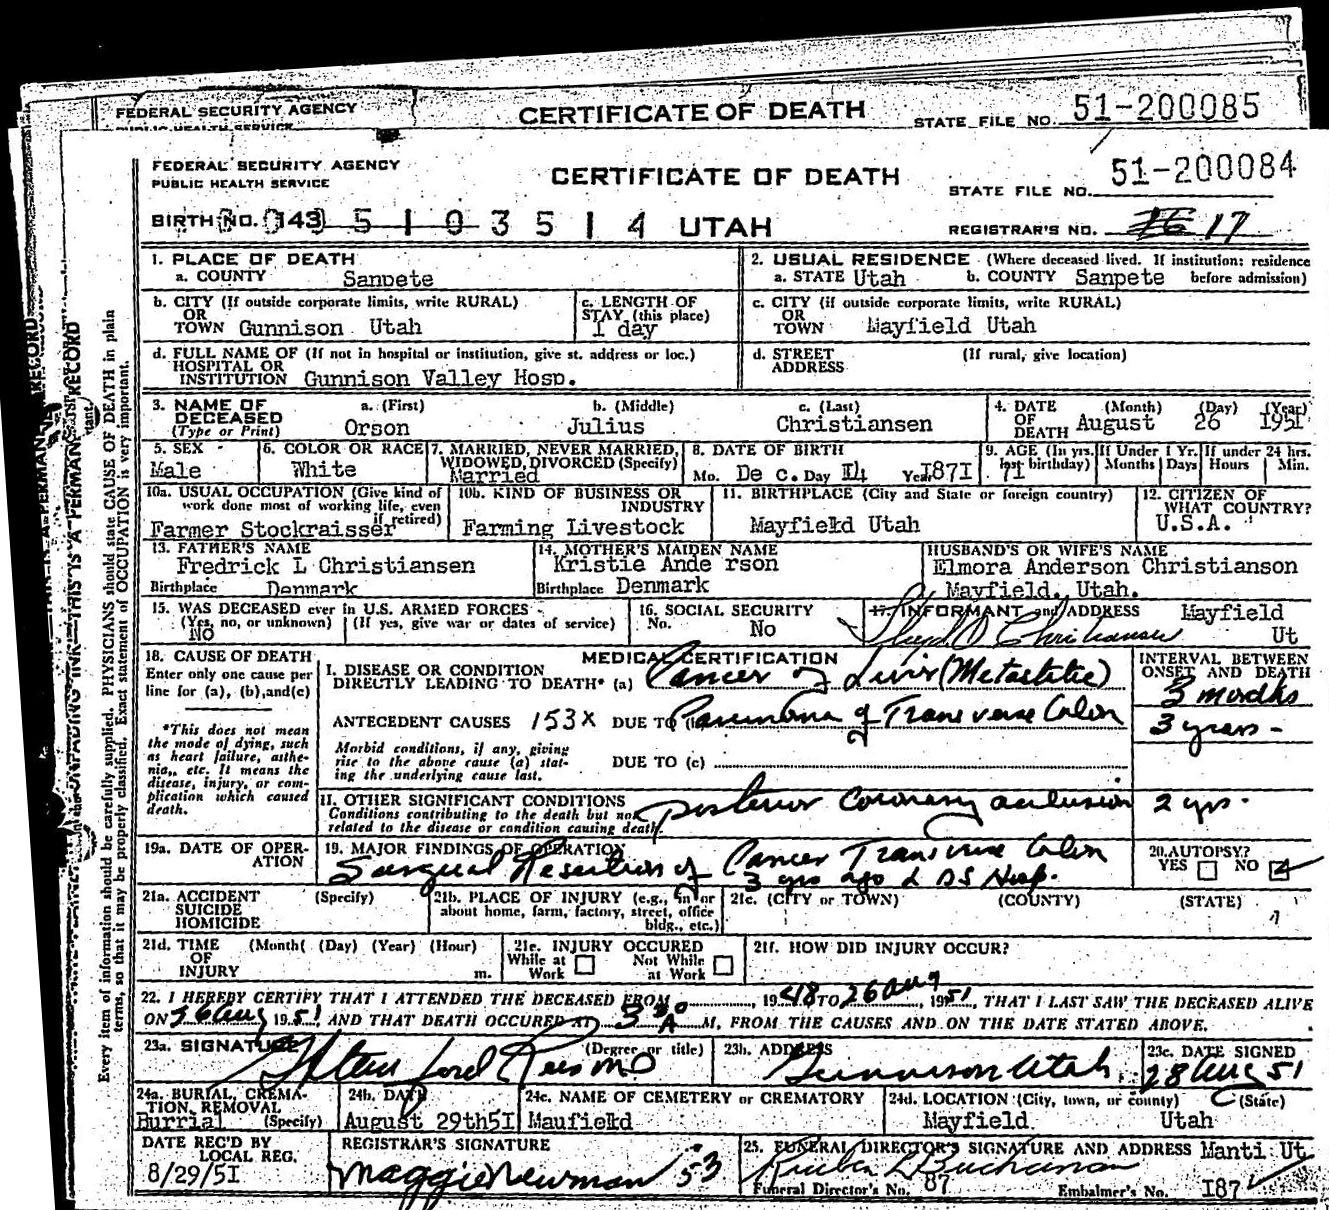 FEDERAL SECURITY AGENCY CERTIFICATE OF DEATH STATE FILE NO. 51-200085
PUBLIC HEALTH SERVICE
FEDERAL SECURITY AGENCY
PUBLIC HEALTH SERVICE
CERTIFICATE OF DEATH
STATE FILE NO. 51-200084
BIRTH NO. 143 5 1 0 3 5 1 4 UTAH
REGISTRAR'S NO. 17
1. PLACE OF DEATH
a. COUNTY Sanpete
2. USUAL RESIDENCE (Where deceased lived. If institution: residence
a. STATE Utah b. COUNTY Sanpete before admission)
b. CITY (If outside corporate limits, write RURAL)
OR
TOWN Gunnison Utah
c. LENGTH OF
STAY (this place)
I day
c. CITY (if outside corporate limits, write RURAL)
OR
TOWN Mayfield Utah
d. FULL NAME OF (If not in hospital or institution, give st. address or loc.)
HOSPITAL OR
INSTITUTION Gunnison Valley Hosp.
d. STREET (If rural, give location)
ADDRESS
3. NAME OF
DECEASED
(Type or Print)
a. (First)
Orson
b. (Middle)
Julius
c. (Last)
Christiansen
4. DATE (Month) (Day) (Year)
OF
DEATH August 26 1951
5. SEX
Male
6. COLOR OR RACE
White
7. MARRIED, NEVER MARRIED,
WIDOWED, DIVORCED (Specify)
Married
8. DATE OF BIRTH
Mo. De c. Day I4 Year I87I
9. AGE (In yrs.
last birthday)
7I
If Under 1 Yr.
Months Days
If under 24 hrs.
Hours Min.
10a. USUAL OCCUPATION (Give kind of
work done most of working life, even
if retired)
Farmer Stockraisser
10b. KIND OF BUSINESS OR
INDUSTRY
Farming Livestock
11. BIRTHPLACE (City and State or foreign country)
Mayfield Utah
12. CITIZEN OF
WHAT COUNTRY?
U.S.A.
13. FATHER'S NAME
Fredrick L Christiansen
Birthplace Denmark
14. MOTHER'S MAIDEN NAME
Kristie Ande rson
Birthplace Denmark
HUSBAND'S OR WIFE'S NAME
Elmora Anderson Christianson
Mayfield, Utah.
15. WAS DECEASED ever in U.S. ARMED FORCES
(Yes, no, or unknown) (If yes, give war or dates of service)
NO
16. SOCIAL SECURITY
No. No
17. INFORMANT and ADDRESS Mayfield
Lloyd O Christiansen Ut
18. CAUSE OF DEATH
Enter only one cause per
line for (a), (b),and(c)
*This does not mean
the mode of dying, such
as heart failure, asthe-
nia,, etc. It means the
disease, injury, or com-
plication which caused
death.
MEDICAL CERTIFICATION
I. DISEASE OR CONDITION
DIRECTLY LEADING TO DEATH* (a) Cancer of Liver (Metastatic)
ANTECEDENT CAUSES 153X DUE TO Carcinoma of Transverse Colon
Morbid conditions, if any, giving
rise to the above cause (a) stat-
ing the underlying cause last.
DUE TO (c)
INTERVAL BETWEEN
ONSET AND DEATH
3 months
3 years -
II. OTHER SIGNIFICANT CONDITIONS
Conditions contributing to the death but not
related to the disease or condition causing death.
posterior coronary occlusion 2 yrs.
19a. DATE OF OPER-
ATION
19. MAJOR FINDINGS OF OPERATION
Surgical Resection of Cancer Transverse Colon
3 yrs ago L D S Hosp.
20. AUTOPSY?
YES NO
21a. ACCIDENT (Specify)
SUICIDE
HOMICIDE
21b. PLACE OF INJURY (e.g., in or
about home, farm, factory, street, office
bldg., etc.)
21c. (CITY or TOWN) (COUNTY) (STATE)
21d. TIME (Month( (Day) (Year) (Hour)
OF
INJURY m.
21e. INJURY OCCURED
While at Not While
Work at Work
21f. HOW DID INJURY OCCUR?
22. I HEREBY CERTIFY THAT I ATTENDED THE DECEASED FROM 1948 TO 26 Aug 1951, THAT I LAST SAW THE DECEASED ALIVE
ON 26 Aug 1951 AND THAT DEATH OCCURED AT 3 30 A M, FROM THE CAUSES AND ON THE DATE STATED ABOVE.
23a. SIGNATURE (Degree or title)
Rees MD
23b. ADDRESS
Gunnison Utah
23c. DATE SIGNED
28 Aug 51
24a. BURIAL, CREMA-
TION, REMOVAL
(Specify)
Burrial
24b. DATE
August 29th5I
24c. NAME OF CEMETERY or CREMATORY
Maufield
24d. LOCATION (City, town, or county) (State)
Mayfield Utah
DATE REC'D BY
LOCAL REG.
8/29/5I
REGISTRAR'S SIGNATURE
Maggie Newman 53
25. FUNERAL DIRECTOR'S SIGNATURE AND ADDRESS Manti Ut
Reuben L Buchanan
Funeral Director's No. 87 Embalmer's No. I87
Every item of information should be carefully supplied. PHYSICIANS should state CAUSE OF DEATH in plain
terms, so that it may be properly classified. Exact statement of OCCUPATION is very important.
UNFADING INK-THIS IS A PERMANENT RECORD